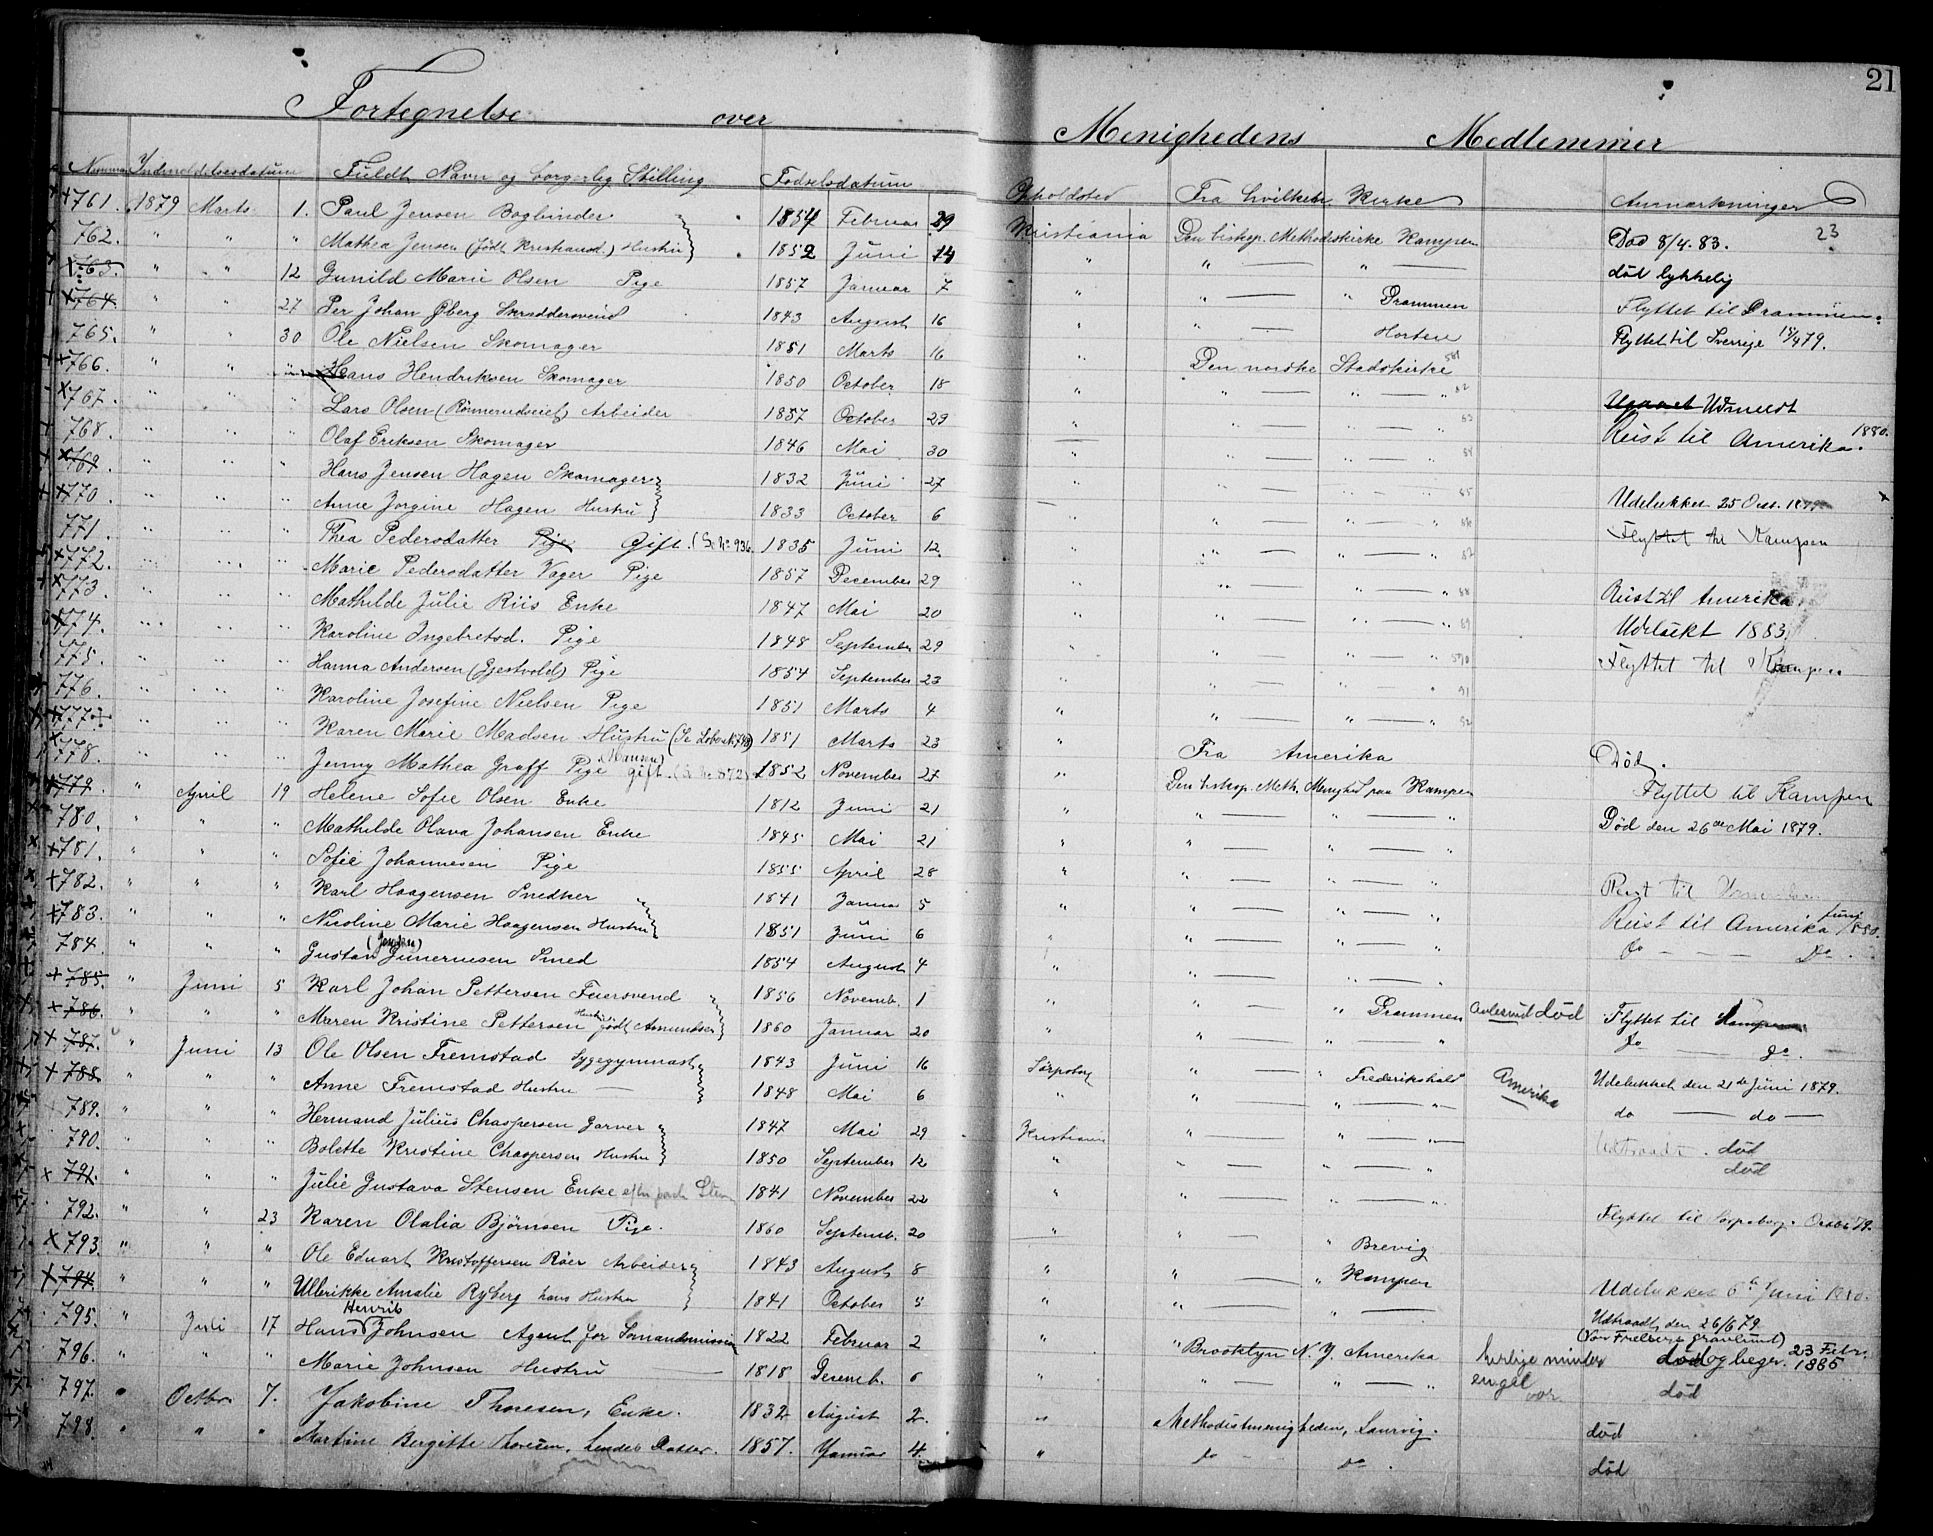 21
Fortegnelse over Menighedens Medlemmer
Nummer Indmeldelsesdatum Fuldt Navn og borgerlig Stilling Fødselsdatum Opholdsted Fra hvilken Kirke Anmærkninger
761. 1879 Marts 1. Paul Jensen Bogbinder 1854 Februar 29 Kristiania Den biskop. Methodistkirke Kampen Død 8/4. 83. 23
762. " " " Mathea Jensen (født Kristiansd.) Hustru 1852 Juni 14 " " — " — død lykkelig
763. " " 12 Gunild Marie Olsen Pige 1857 Januar 7 " " — " Drammen Flyttet til Drammen.
764. " " 27 Per Johan Øberg Skreddersvend 1843 August 16 " " — Horten Flyttet til Sverrige 18/4 79.
765. " " 30 Ole Nielsen Skomager 1851 Marts 16 " Den norske Stadskirke 581
766. " " " Hans Hendriksen Skomager 1850 October 18 " " — " — " 82 Udmeldt
767. " " " Lars Olsen (Rønnerudseiet) Arbeider 1857 October 29 " " — " — " 83 Reist til Amerika 1880.
768. " " " Olaf Eriksen Skomager 1846 Mai 30 " " — " — " 84
769. " " " Hans Jensen Hagen Skomager 1832 Juni 27 " " — " — " 85 Udelukket 25 Oct. 1879
770. " " " Anne Jorgine Hagen Hustru 1833 October 6 " " — " — " 86 Flyttet til Kampen
771. " " " Thea Pedersdatter Pige Gift. (Se No 936 1835 Juni 12 " " — " — " 87
772. " " " Marie Pedersdatter Vager Pige 1857 December 29 " " — " — " 88 Reist til Amerika
773. " " " Mathilde Julie Riis Enke 1847 Mai 20 " " — " — " 89 Udelukt 1883
774. " " " Karoline Ingebretsd. Pige 1848 September 29 " " — " — " 590 Flyttet til Kampen
775. " " " Hanna Andersen (Gjestvold) Pige 1854 September 23 " " — " — " 91
776. " " " Karoline Josefine Nielsen Pige 1851 Marts 4 " " — " — " 92
777 " " " Karen Marie Madsen Hustru (Se Løbe No 748) 1851 Marts 23 " Fra Amerika Død.
778. " " " Jenny Mathea Graff Pige (Hansen) gift. (Se No 872) 1852 November 27 " Den biskop. Meth. Menighed paa Kampen Flyttet til Kampen
779. " April 19 Helene Sofie Olsen Enke 1812 Juni 21 " " — " — " Død den 26de Mai 1879.
780. " " " Mathilde Olava Johansen Enke 1845 Mai 21 " " — " — "
781. " " " Sofie Johannesen Pige 1855 April 28 " " — " — " Reist til
782. " " " Karl Haagensen Snedker 1841 Januar 5 " " — " — " Reist til Amerika Juni 1880.
783. " " " Nicoline Marie Haagensen Hustru 1851 Juni 6 " " — " — " Do — — — Do
784. " " " Gustav Gunerusen Smed 1854 August 4 " " — " — "
785. " Juni 5 Karl Johan Pettersen Faersvend 1856 Novemb. 1 " " — " Drammen død Flyttet til Kampen
786. " " " Maren Kristine Pettersen Hustru født Asmundsen 1860 Januar 20 " " — " — " Do — do.
787. " Juni 13 Ole Olsen Fremstad Sygegymnast 1843 Juni 16 Sarpsborg " — " Frederikshald Amerika Udelukket den 21de Juni 1879.
788. " " " Anne Fremstad Hustru — 1848 Mai 6 " " — " — " do — do —
789. " " " Hermand Julius Chaspersen Garver 1847 Mai 29 Kristiania " — " — " Udtraadt. død
790. " " " Bolette Kristine Chaspersen Hustru 1850 September 12 " " — " — " død
791. " " " Julie Gustava Stensen Enke 1841 November 22 " " — " — " Flyttet til Sarpsborg. Octbr 79.
792. " " 23 Karen Olalia Bjørnsen Pige. 1860 Septemb. 20 — " — " Brevig
793. " " " Ole Edvart Kristoffersen Röer Arbeider 1843 August 8 " " — " Kampen Udelukket 6te Juni 1880.
794. " " " Ullerikke Amalie Ryberg hans Hustru 1841 October 5 " " — " — " Udtraadt den 26/6 79.
795. " Juli 17 Hans Henrik Johnsen Agent for Sømandsmission 1822 Februar 2 " " Brooklyn N. Y. Amerika død og begr. 23 Febr. 1885
796. " " " Marie Johnsen Hustru — 1818 Decemb. 6 " " — " — " død
797. " Octbr. 7. Jakobine Thoresen, Enke. 1832 August 2. " Methodistmenigheden, Laurvig. død
798. " " " Martine Bergitte Thoresen, hendes Datter. 1857. Januar 4. " Do — do. død